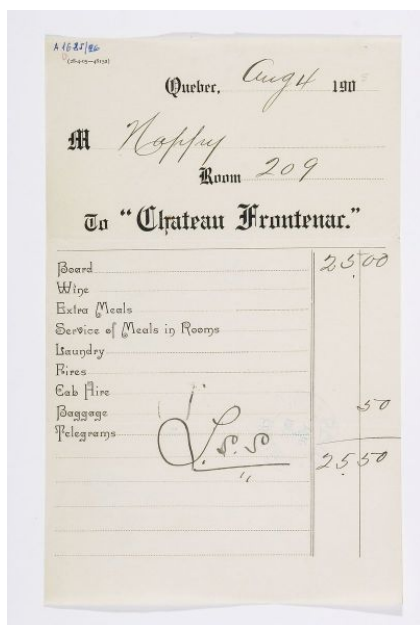 A 1625/96
Quebec, Aug 4 190
M Hoffry
Room 209
To "Chateau Frontenac."
Board 25 00
Wine
Extra Meals
Service of Meals in Rooms
Laundry
Fires
Cab Hire
Baggage 50
Telegrams
25 50